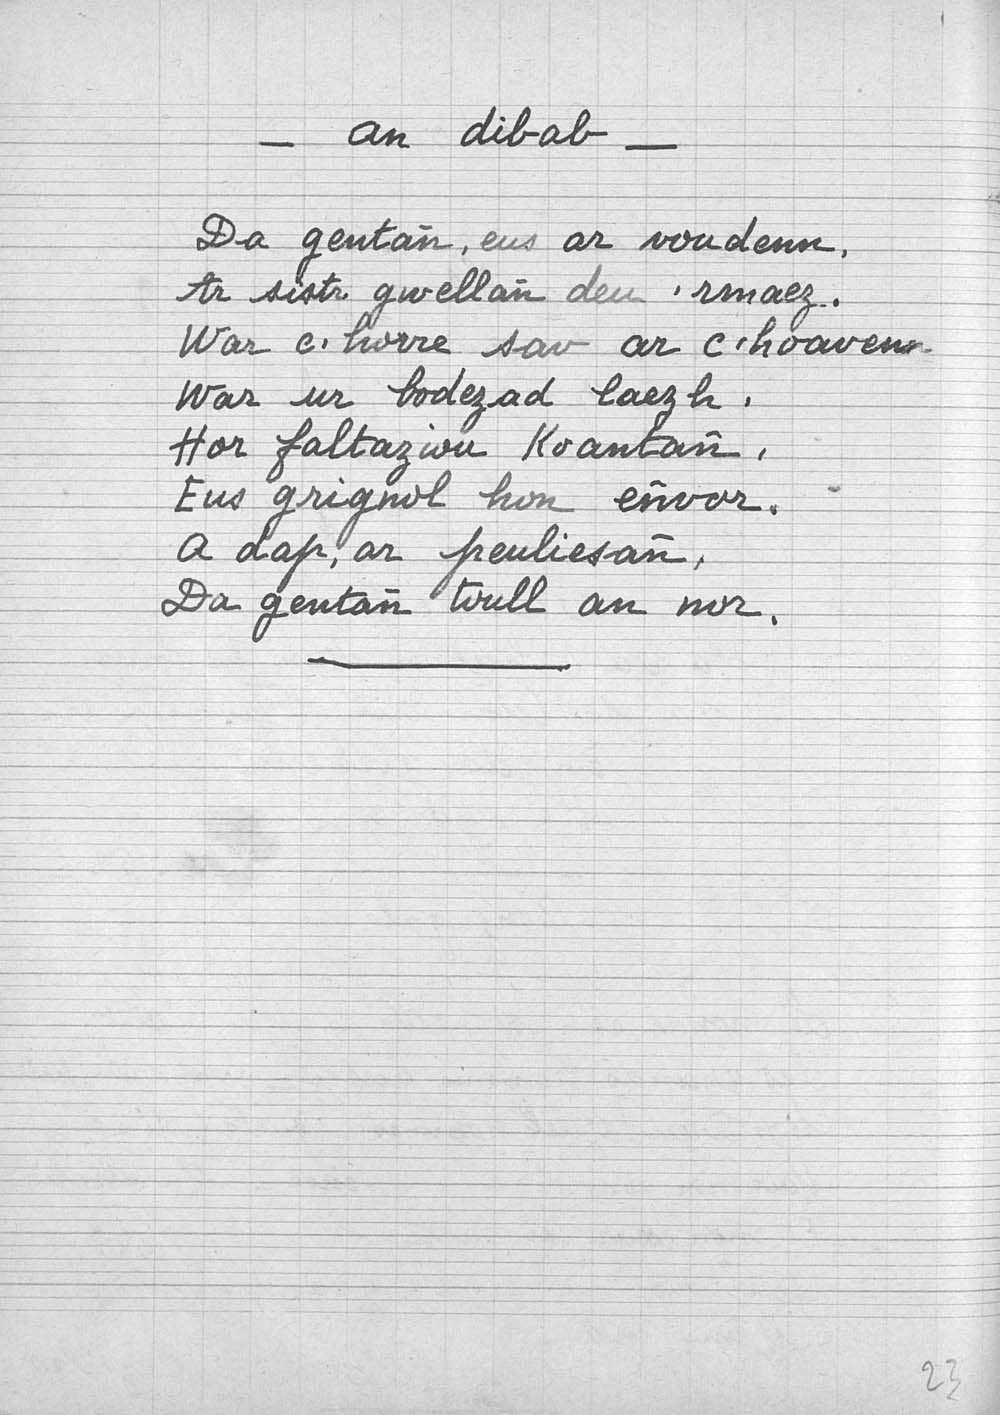 — an dibab —
Da gentañ, eus ar voudenn,
Ar sistr gwellañ deu 'rmaez.
War c'horre sav ar c'hoavenn
War ur bodezad laezh.
Hor faltaziou Koantañ,
Eus grignol hon eñvor.
A dap, ar peuliesañ,
Da gentañ toull an nor.
23